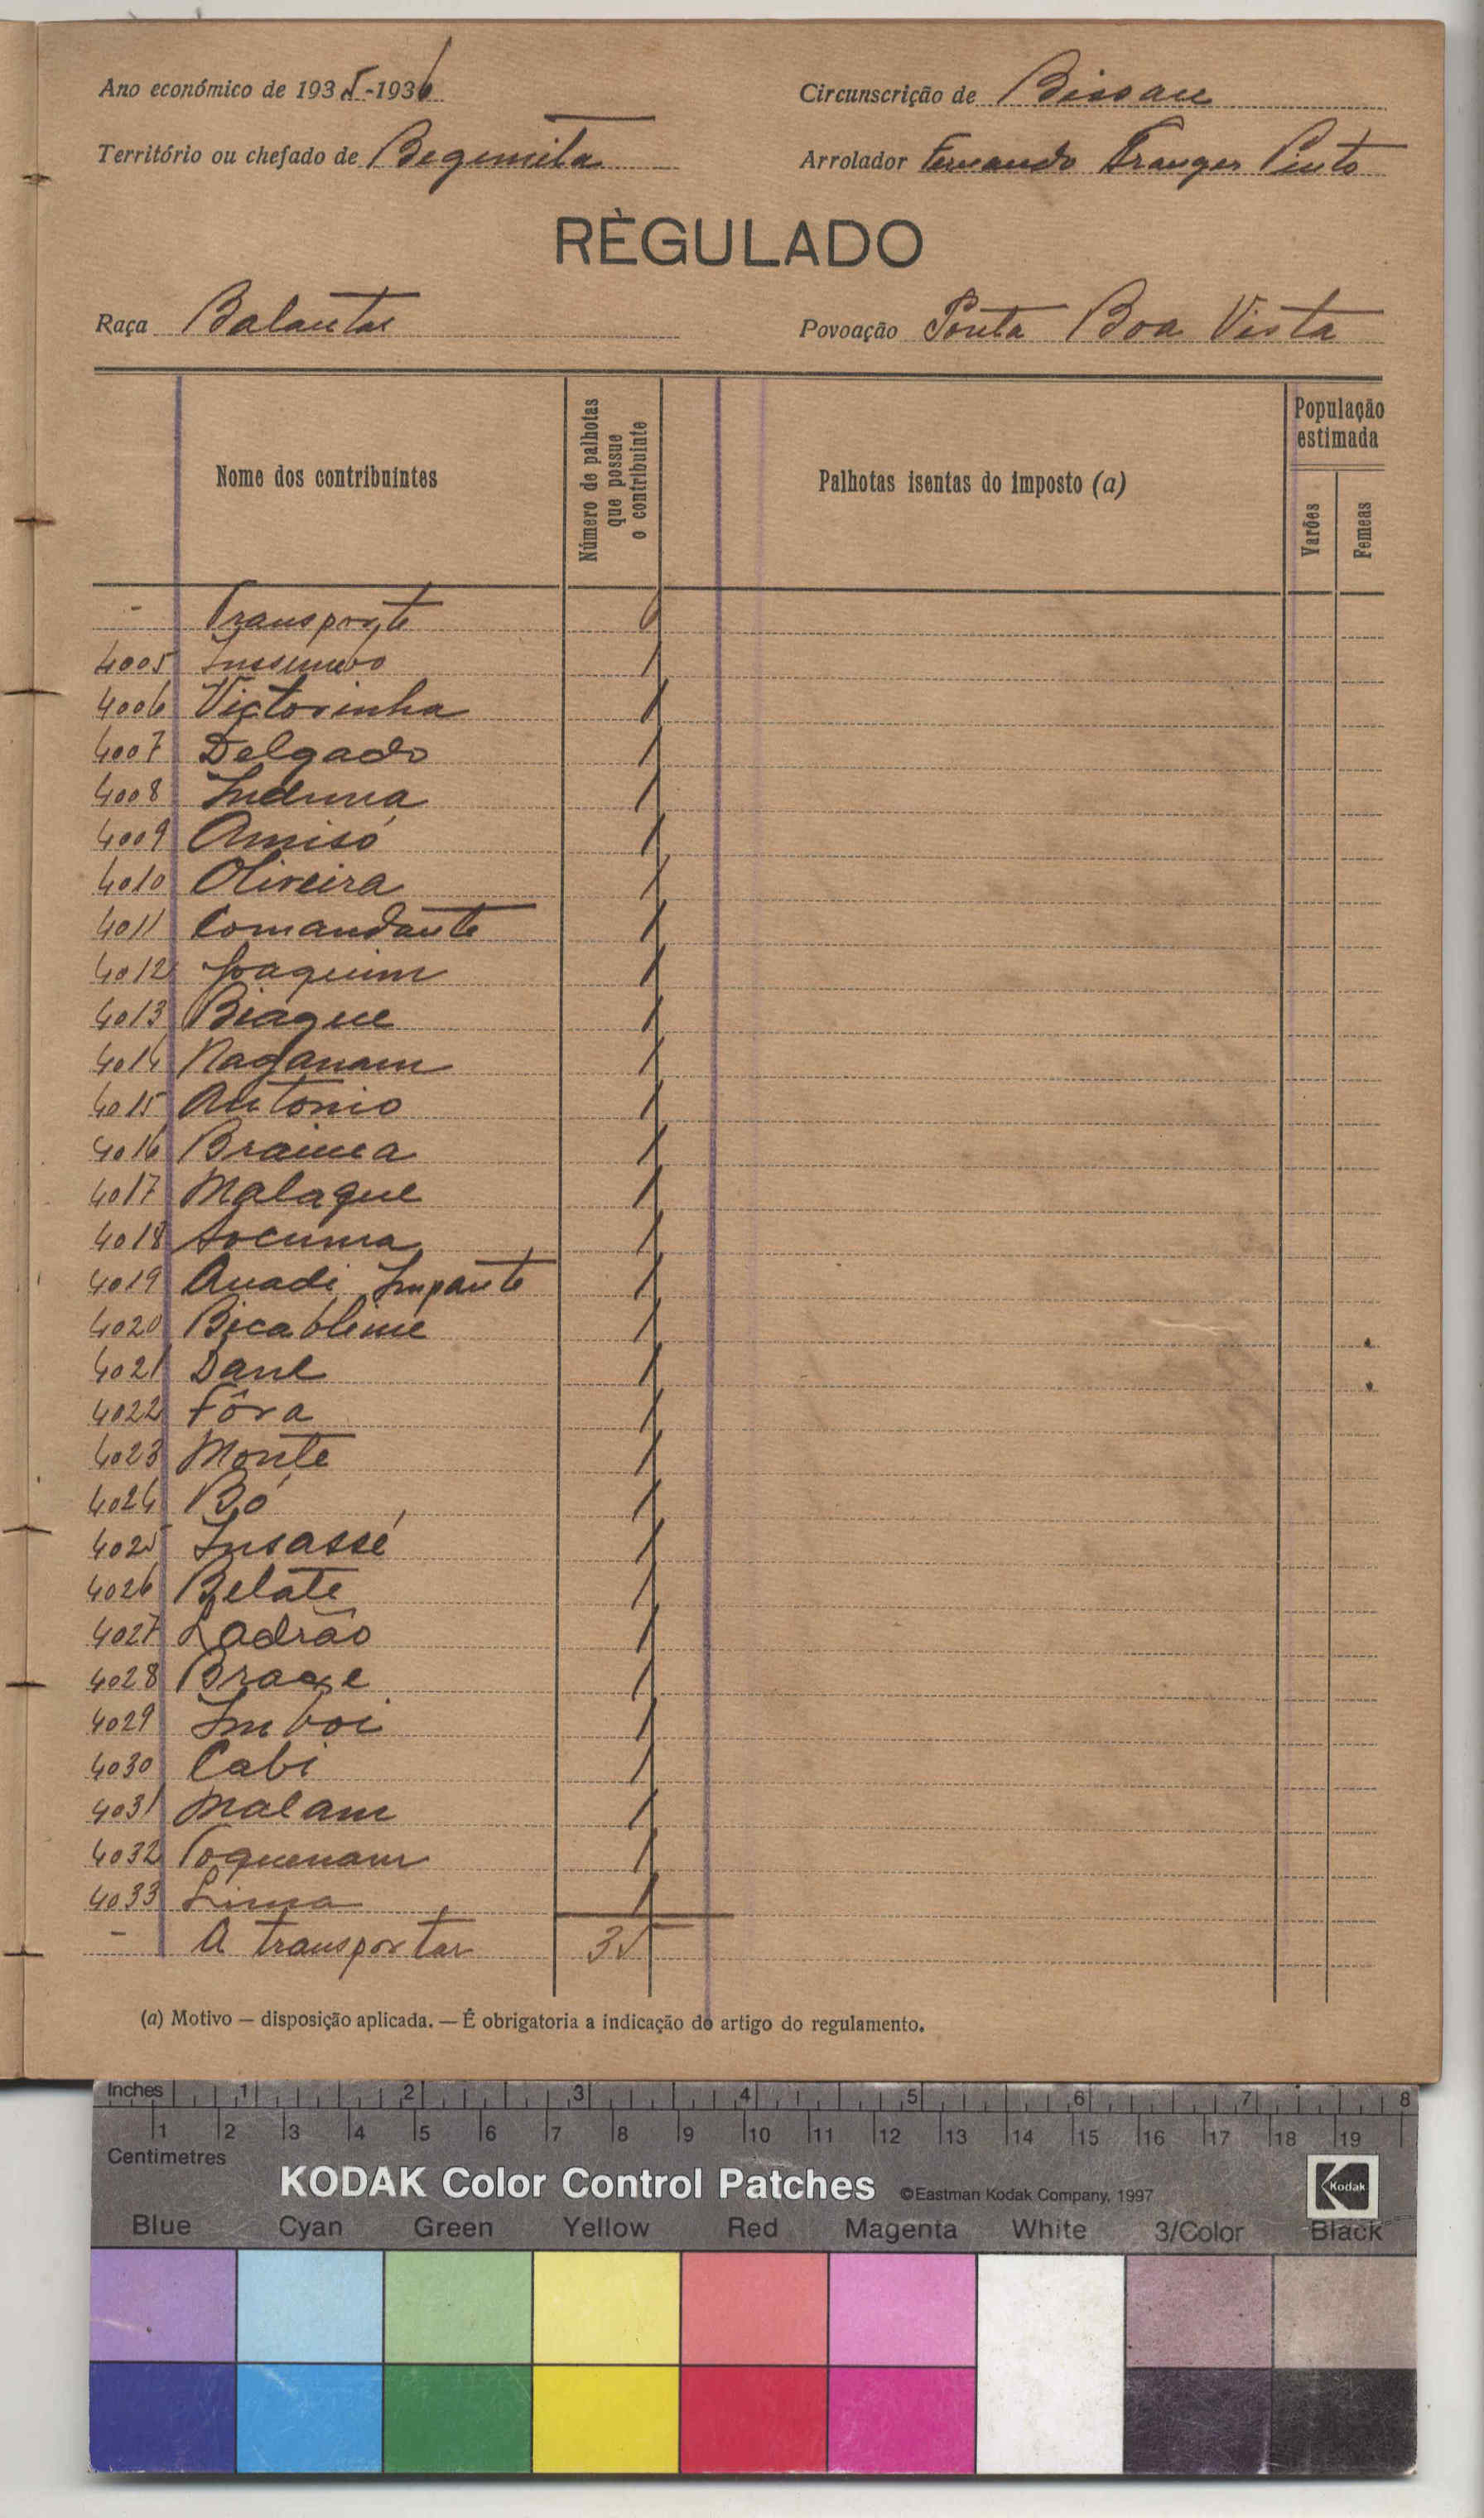 Ano económico de 1935-1936
Circunscrição de Bissau
Território ou chefado de Begemita
Arrolador Fernando Pinto
RÈGULADO
Raça Balantas
Povoação Ponta Boa Vista
Nome dos contribuintes
Número de palhotas que possue o contribuinte
Palhotas isentas do imposto (a)
População estimada
Varões
Femeas
- Transporte 6
4005 1
4006 Victorinha 1
4007 Delgado 1
4008 Induna 1
4009 Amisó 1
4010 Oliveira 1
4011 Comandante 1
4012 Joaquim 1
4013 Biague 1
4014 Naganam 1
4015 Antonio 1
4016 Braima 1
4017 Malaque 1
4018 Socuma 1
4019 Anadi Impante 1
4020 1
4021 Dane 1
4022 Fôra 1
4023 Monte 1
4024 Bó 1
4025 Insassé 1
4026 Belate 1
4027 Ladrão 1
4028 1
4029 Imboi 1
4030 Cabi 1
4031 Malam 1
4032 1
4033 Lima 1
- A transportar 35
(a) Motivo — disposição aplicada. — É obrigatoria a indicação do artigo do regulamento.
Inches 1 2 3 4 5 6 7 8
1 2 3 4 5 6 7 8 9 10 11 12 13 14 15 16 17 18 19
Centimetres
KODAK Color Control Patches ©Eastman Kodak Company, 1997 Kodak
Blue Cyan Green Yellow Red Magenta White 3/Color Black